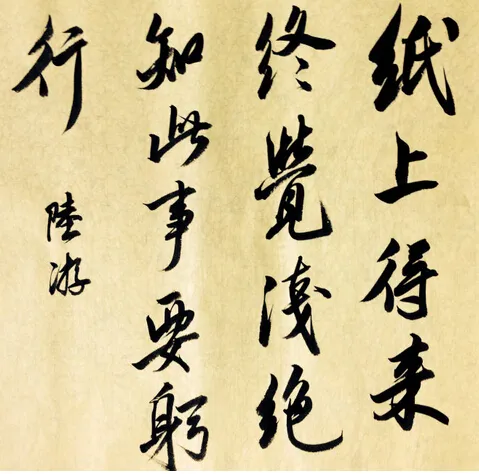 纸上得来
终覺淺绝
知此事要躬
行
陸游